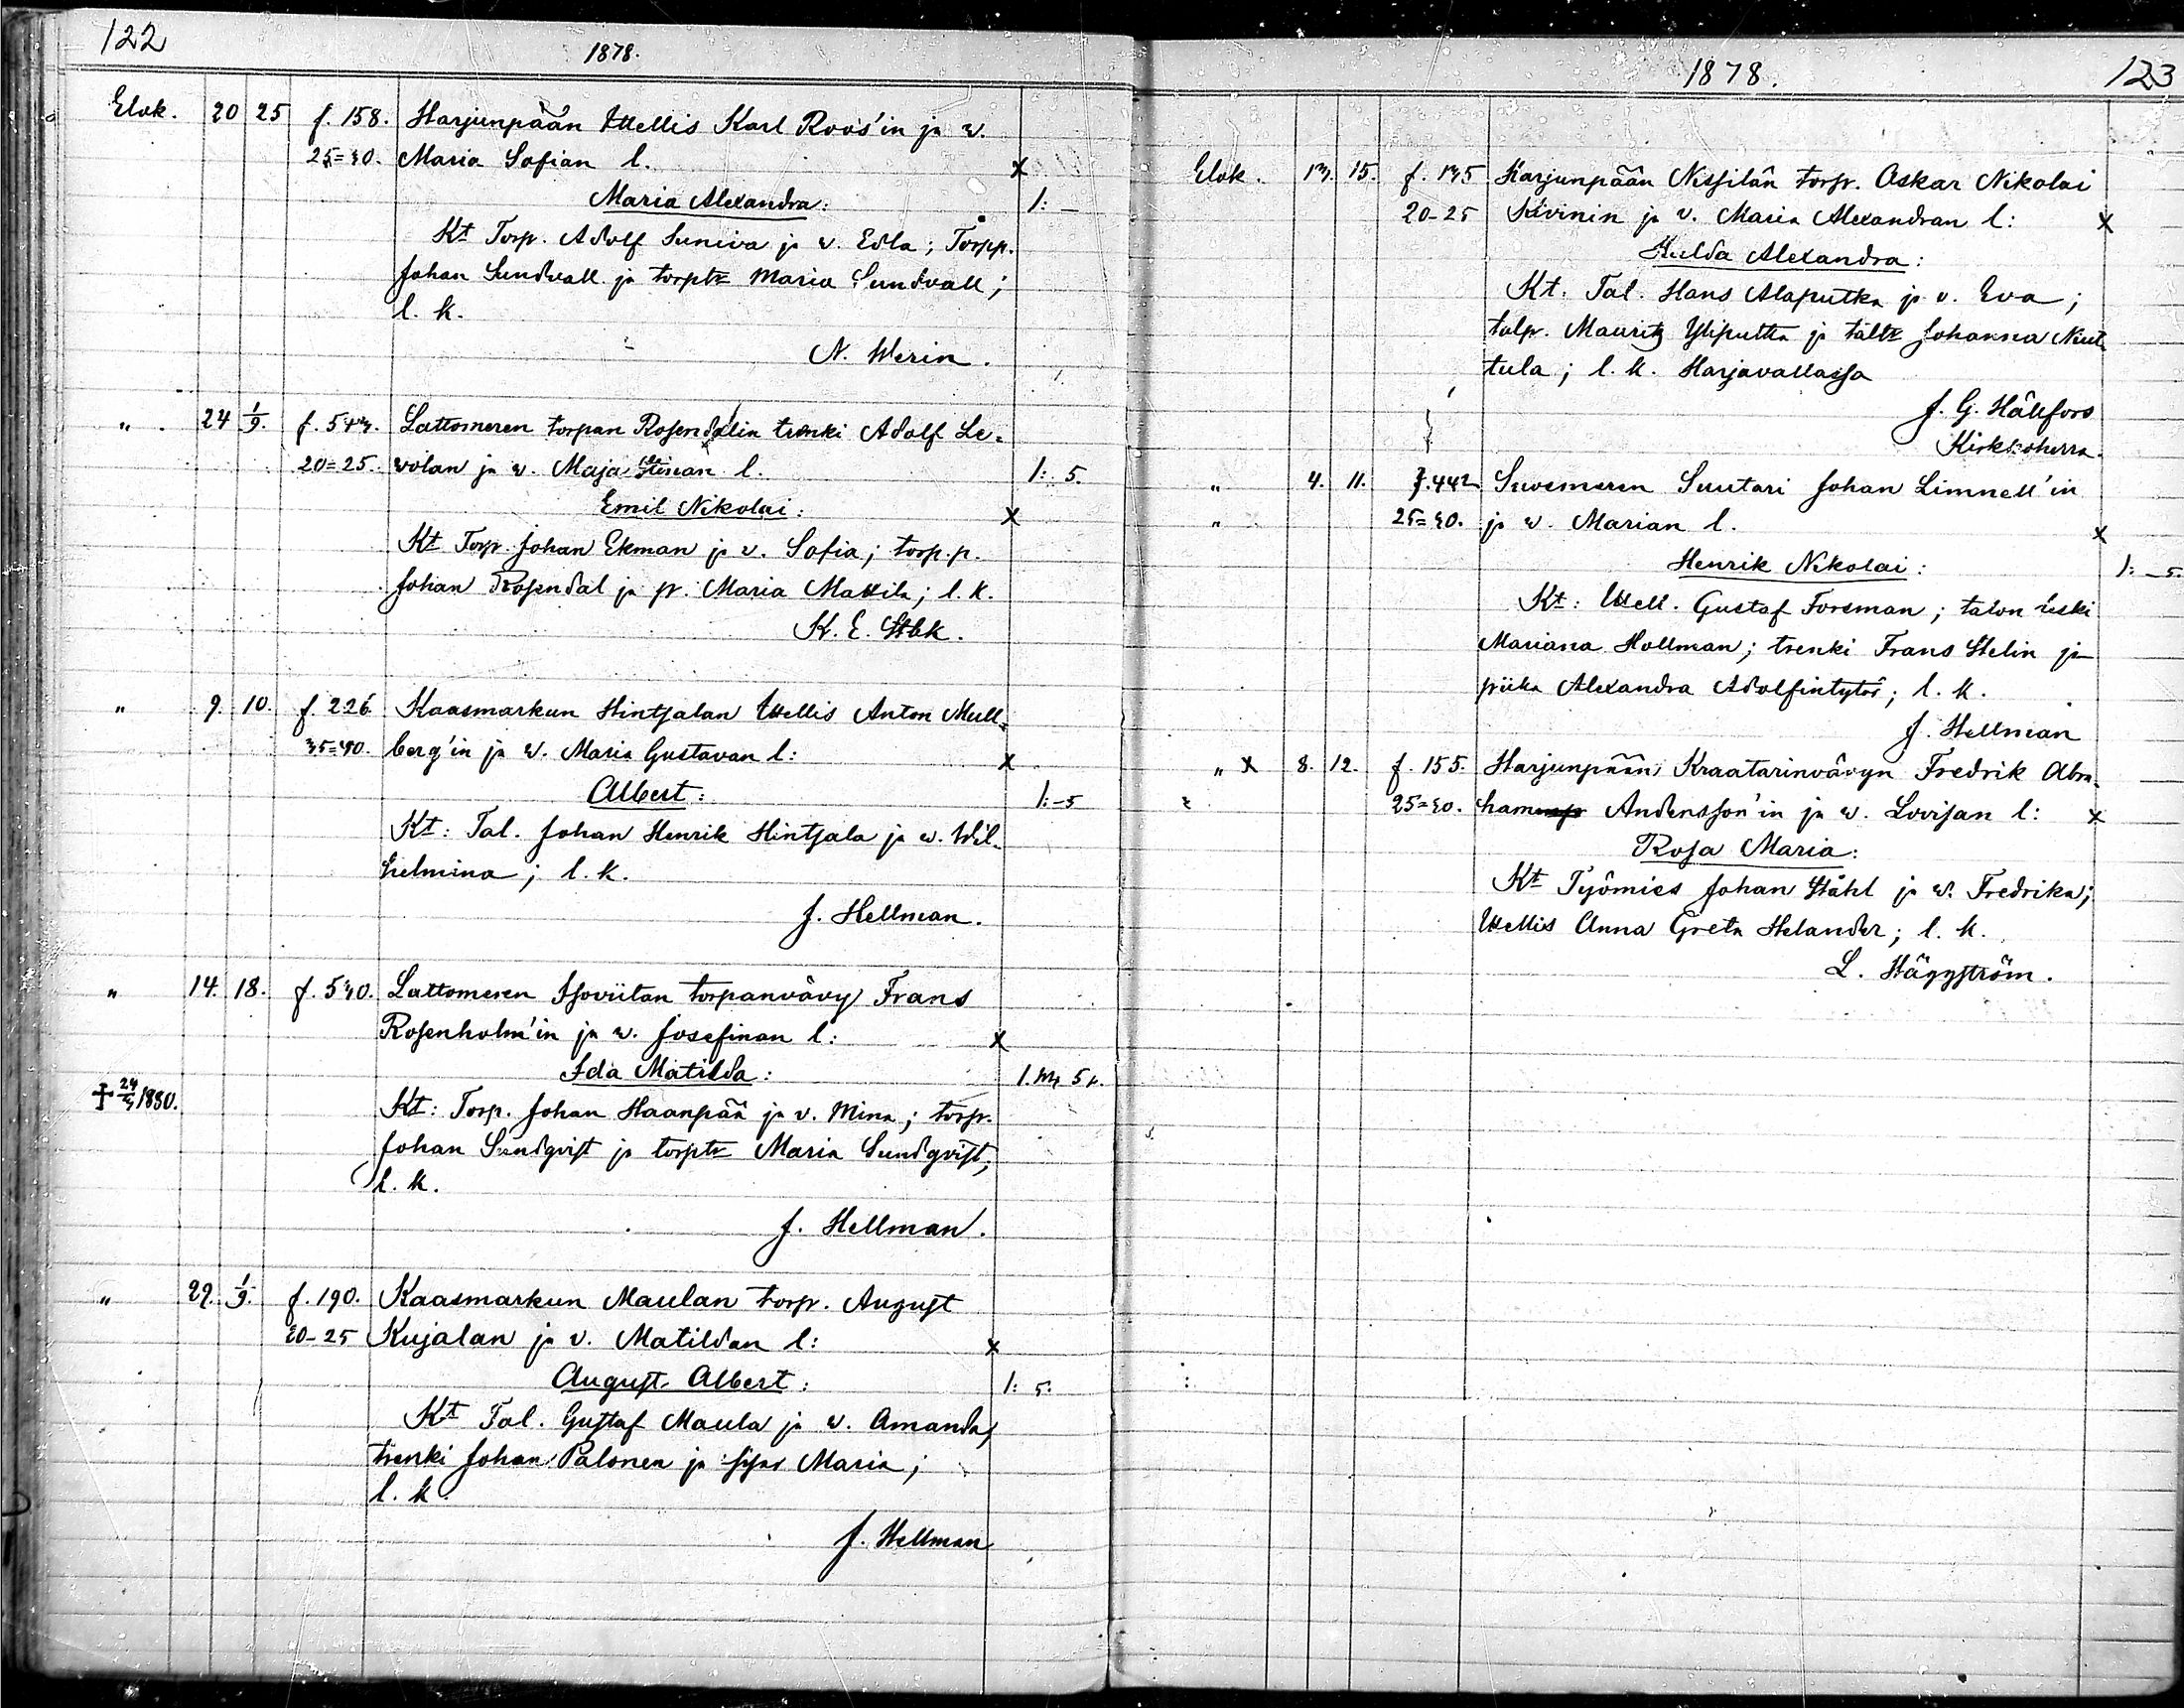 122
1878.
Elok. 20 25 f. 158. Harjunpään Itellis Karl Roos'in ja w.
25=30. Maria Sofian l. x
Maria Alexandra: 1: —
Kt Torp. Adolf Suniva ja w. Edla; Torpp.
Johan Sundvall ja torptr Maria Sundvall;
l. k.
N. Merin.
" 24 1/9. f. 543. Lattomeren torpan Rosendalin trenki Adolf Le=
20=25. volan ja w. Maja Stinan l. 1: 5.
Emil Nikolai: x
Kt Torp. Johan Ekman ja v. Sofia; torp.p.
Johan Rosendal ja p. Maria Mattila; l. k.
K. E. Stbk.
" 9. 10. f. 226 Kaasmarkun Hintsalan Itellis Anton Mull=
35=40. berg'in ja w. Maria Gustavan l: x
Albert: 1:-5
Kt: Tal. Johan Henrik Hintsala ja w. Wil-
helmina; l. k.
J. Hellman.
" 14. 18. f. 530. Lattomeren Isoviitan torpanvävy Frans
Rosenholm'in ja w. Josefinan l: x
Ida Matilda: 1. 5
† 24/3 1880. Kt: Torp. Johan Haanpää ja v. Mina; torp.
Johan Sundqvist ja torptr Maria Sundqvist;
l. k.
J. Hellman.
" 29. 1/9. f. 190. Kaasmarkun Maulan torp. August
20-25 Kujalan ja v. Matildan l: x
August Albert: 1: 5:
Kt Tal. Gustaf Maula ja w. Amanda;
trenki Johan Palonen ja Maria;
l. k.
J. Hellman
1878. 123
Elok. 13. 15. f. 135 Harjunpään Nissilän torp. Oskar Nikolai
20-25 Kivinin ja v. Maria Alexandran l: x
Hulda Alexandra:
Kt. Tal. Hans Alaputka ja v. Eva;
talp. Mauritz Yliputka ja taltr Johanna Niut-
tula; l. k. Harjavallassa
J. G. Hällfors
Kirkkoherra.
" 4. 11. f. 442 Suosmeren Suutari Johan Limnell'in
" 25=30. ja w. Marian l. x
Henrik Nikolai: 1: -5.
Kt: Itell. Gustaf Forsman; talon leski
Mariana Hollman; trenki Frans Helin ja
piika Alexandra Adolfintytär; l. k.
J. Hellman
" x 8. 12. f. 155. Harjunpään Kraatarinvävyn Fredrik Abra-
25=30. ham Andersson'in ja w. Lovisan l: x
Rosa Maria:
Kt Työmies Johan Ståhl ja w. Fredrika;
Itellis Anna Greta Helander; l. k.
L. Häggström.